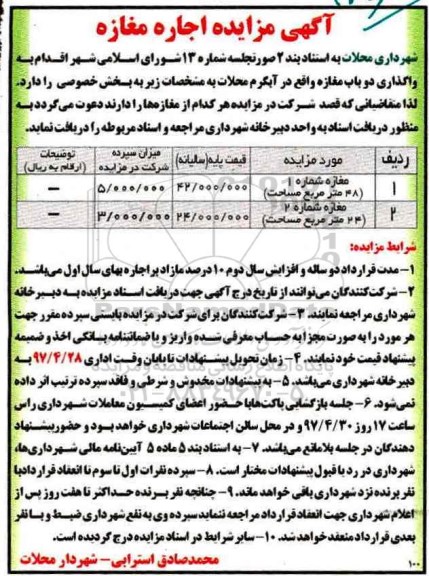 آگهی مزایده اجاره مغازه
شهرداری محلات به استناد بند ۲ صورتجلسه شماره ۱۳ شورای اسلامی شهر اقدام به
واگذاری دو باب مغازه واقع در آبگرم محلات به مشخصات زیر به بخش خصوصی را دارد.
لذا متقاضیانی که قصد شرکت در مزایده هر کدام از مغازه‌ها را دارند دعوت می‌گردد به
منظور دریافت اسناد به واحد دبیرخانه شهرداری مراجعه و اسناد مربوطه را دریافت نماید.
ردیف مورد مزایده قیمت پایه(سالیانه) میزان سپرده شرکت در مزایده توضیحات (ارقام به ریال)
۱ مغازه شماره ۱ (۴۸ متر مربع مساحت) ۴۲/۰۰۰/۰۰۰ ۵/۰۰۰/۰۰۰ —
۲ مغازه شماره ۲ (۲۴ متر مربع مساحت) ۲۴/۰۰۰/۰۰۰ ۳/۰۰۰/۰۰۰ —
شرایط مزایده:
۱- مدت قرارداد دو ساله و افزایش سال دوم ۱۰ درصد مازاد بر اجاره بهای سال اول می‌باشد.
۲- شرکت‌کنندگان می‌توانند از تاریخ درج آگهی جهت دریافت اسناد مزایده به دبیرخانه
شهرداری مراجعه نمایند. ۳- شرکت‌کنندگان برای شرکت در مزایده بایستی سپرده مقرر جهت
هر مورد را به صورت مجزا به حساب معرفی شده واریز و یا ضمانتنامه بانکی اخذ و ضمیمه
پیشنهاد قیمت خود نمایند. ۴- زمان تحویل پیشنهادات تا پایان وقت اداری ۹۷/۴/۲۸ به
دبیرخانه شهرداری می‌باشد. ۵- به پیشنهادات مخدوش و شرطی و فاقد سپرده ترتیب اثر داده
نمی‌شود. ۶- جلسه بازگشایی پاکت‌ها با حضور اعضای کمیسیون معاملات شهرداری راس
ساعت ۱۷ روز ۹۷/۴/۳۰ و در محل سالن اجتماعات شهرداری خواهد بود و حضور پیشنهاد
دهندگان در جلسه بلامانع می‌باشد. ۷- به استناد بند ۵ ماده ۵ آیین‌نامه مالی شهرداری‌ها،
شهرداری در رد یا قبول پیشنهادات مختار است. ۸- سپرده نفرات اول تا سوم تا انعقاد قرارداد با
نفر برنده نزد شهرداری باقی خواهد ماند. ۹- چنانچه نفر برنده حداکثر تا هفت روز پس از
اعلام شهرداری جهت انعقاد قرارداد مراجعه ننماید سپرده وی به نفع شهرداری ضبط و با نفر
بعدی قرارداد منعقد خواهد شد. ۱۰- سایر شرایط در اسناد مزایده درج گردیده است.
محمدصادق استرابی- شهردار محلات
۱۰۰